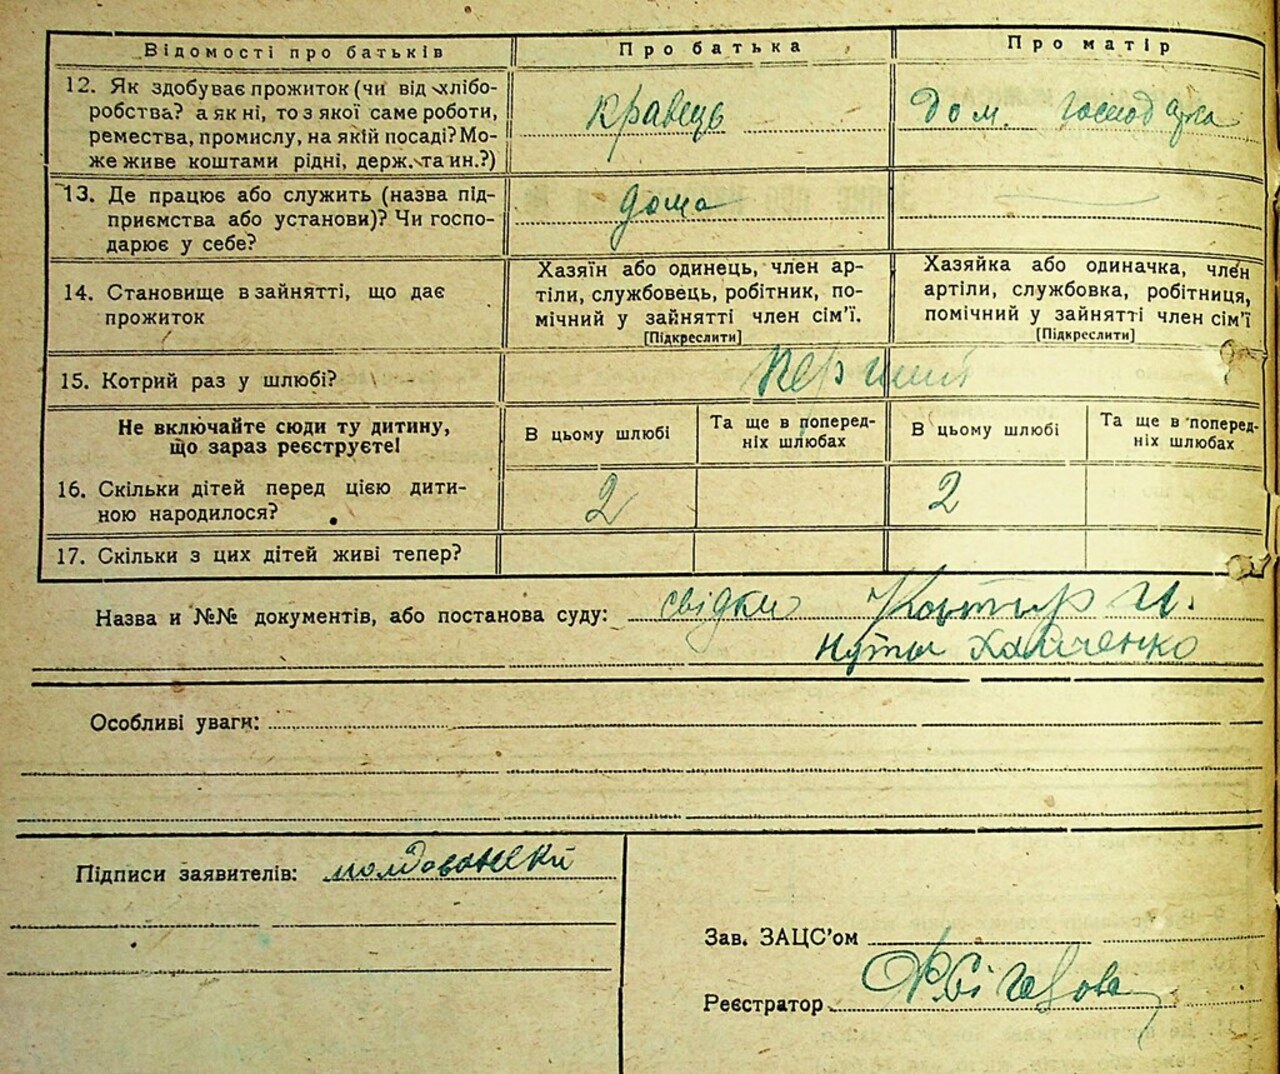 Відомості про батьків
Про батька
Про матір
12. Як здобуває прожиток (чи від хлібо-
робства? а як ні, то з якої саме роботи,
ремества, промислу, на якій посаді? Мо-
же живе коштами рідні, держ. та ин.?)
кравець
дом. господарка
13. Де працює або служить (назва під-
приємства або установи)? Чи госпо-
дарює у себе?
дома
14. Становище в зайнятті, що дає
прожиток
Хазяїн або одинець, член ар-
тілі, службовець, робітник, по-
мічний у зайнятті член сім’ї.
[Підкреслити]
Хазяйка або одиначка, член
артілі, службовка, робітниця,
помічний у зайнятті член сім’ї
[Підкреслити]
15. Котрий раз у шлюбі?
перший
Не включайте сюди ту дитину,
що зараз реєструєте!
В цьому шлюбі
Та ще в поперед-
ніх шлюбах
В цьому шлюбі
Та ще в поперед-
ніх шлюбах
16. Скільки дітей перед цією дити-
ною народилося?
2
2
17. Скільки з цих дітей живі тепер?
Назва и №№ документів, або постанова суду: свідки
Хайченко
Особливі уваги:
Підписи заявителів: молдованский
Зав. ЗАЦС’ом
Реєстратор